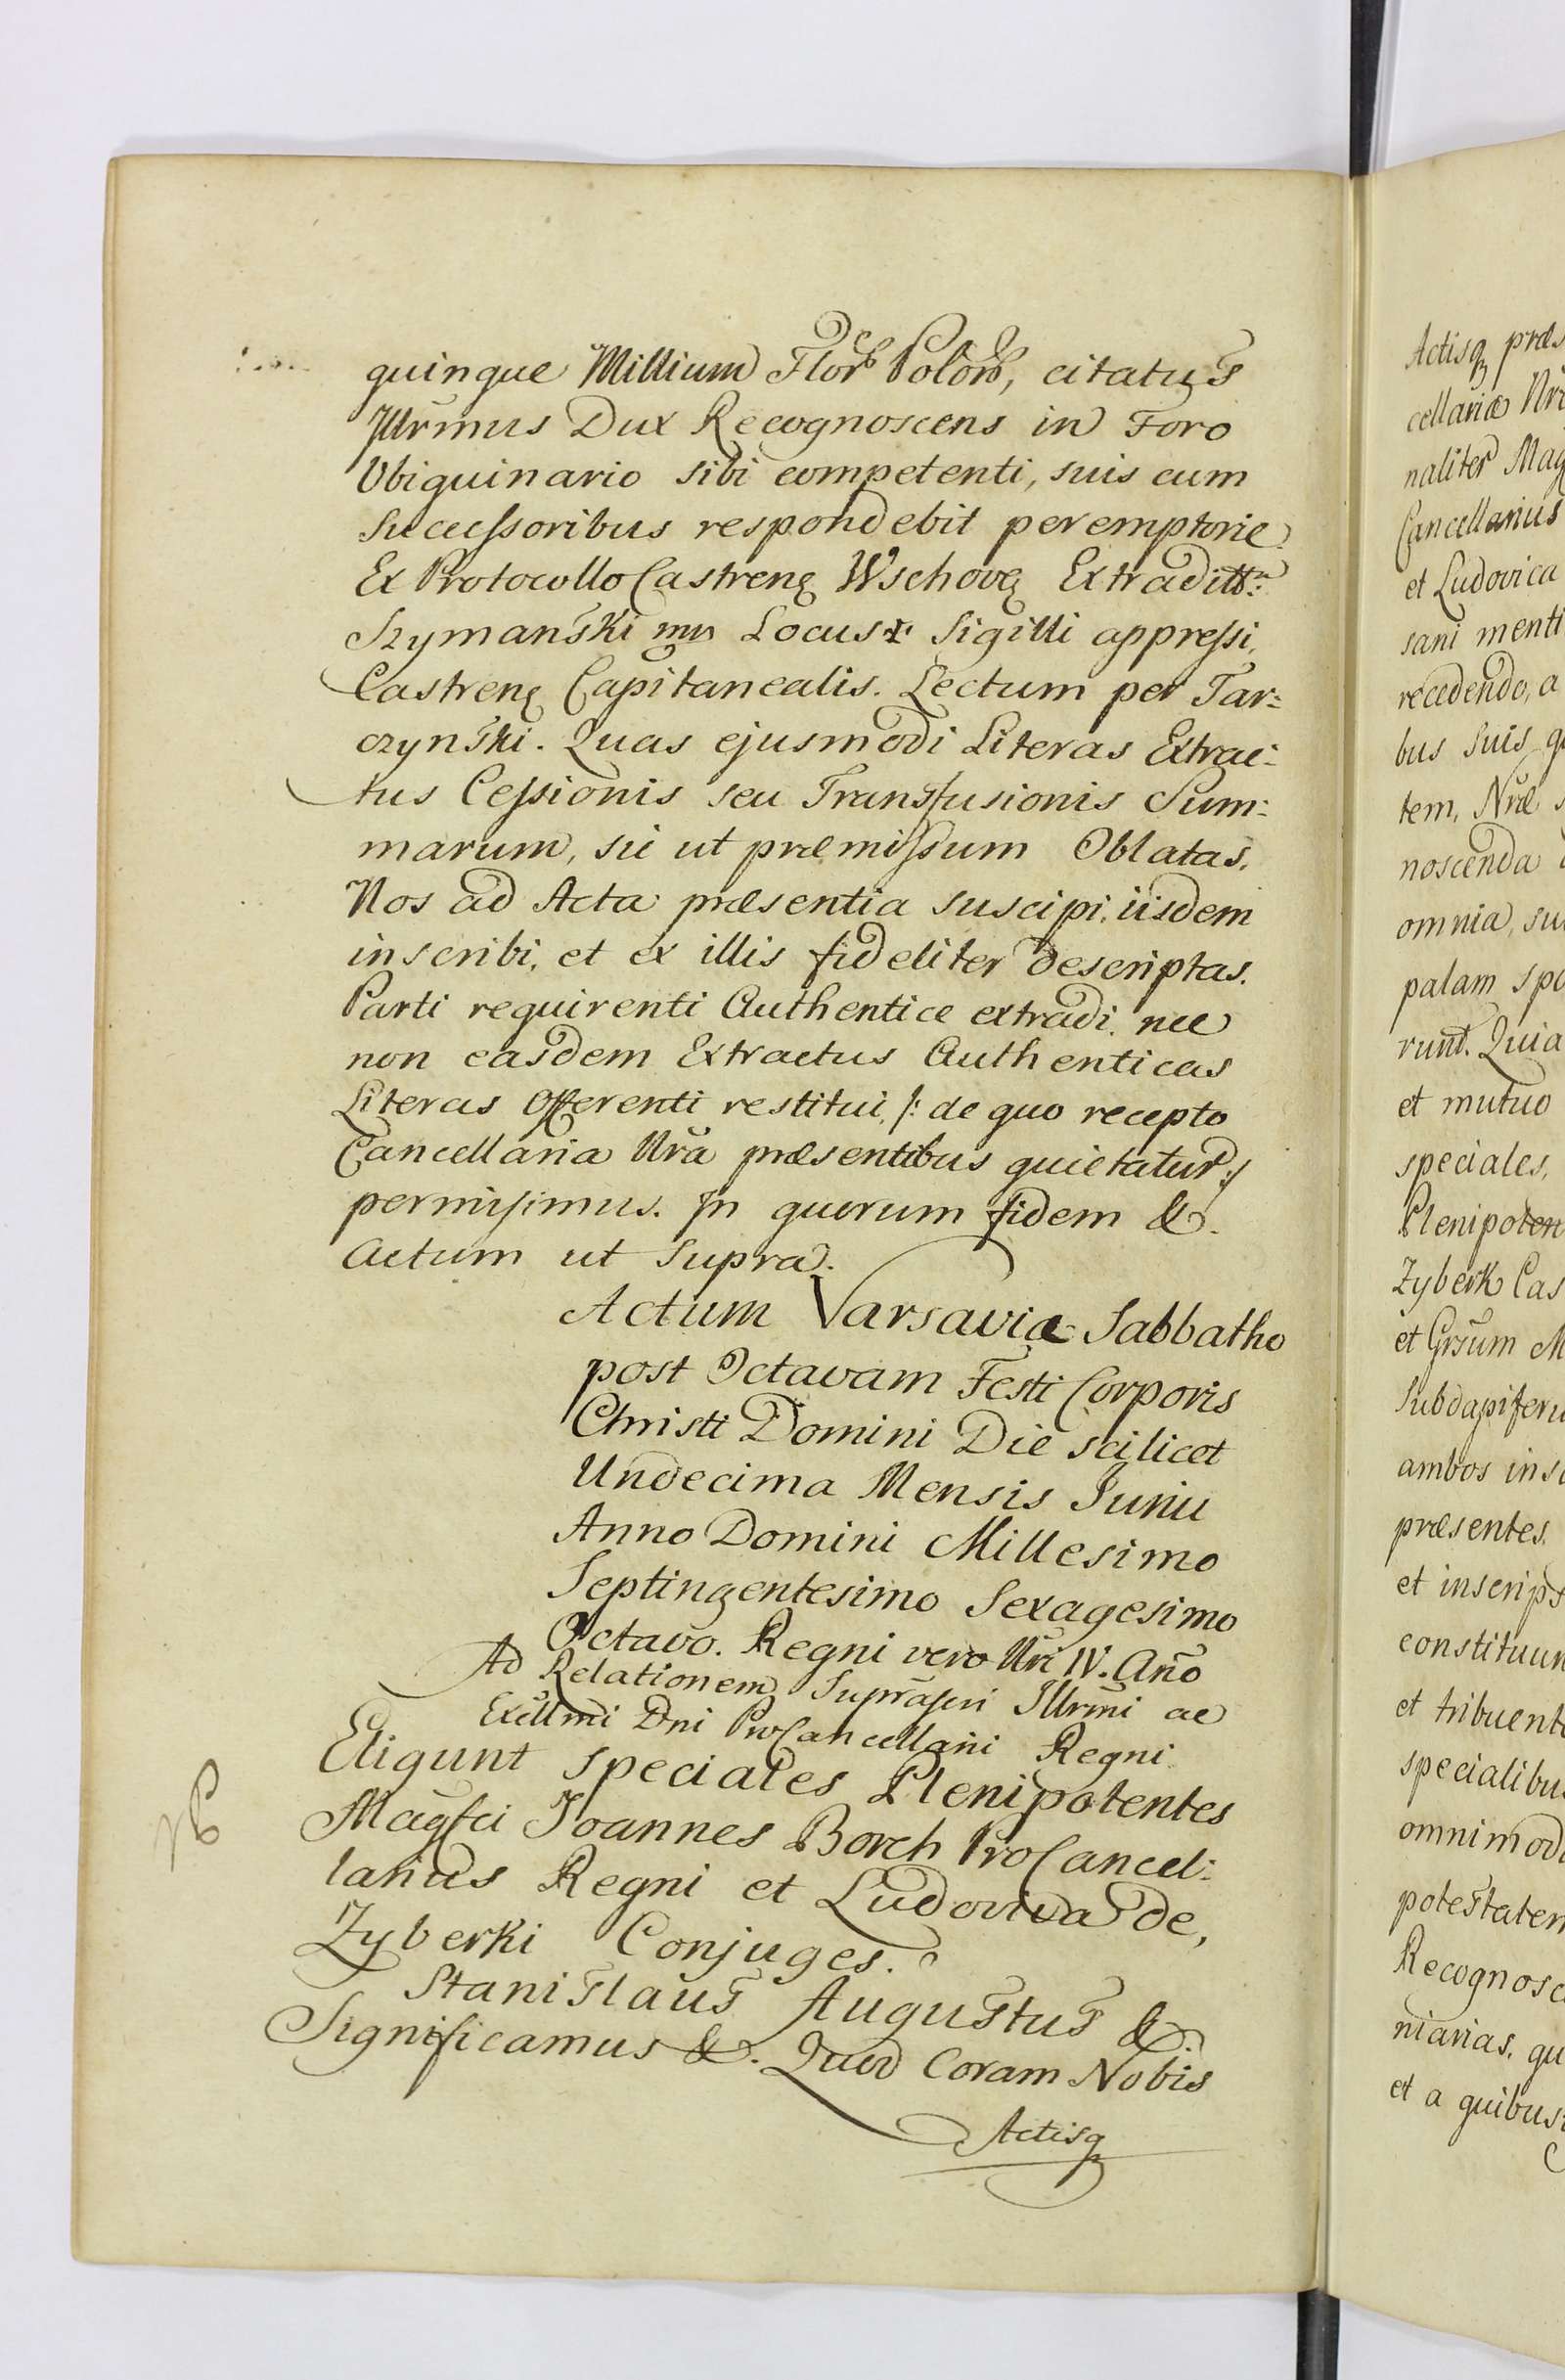 quinque Millium Flor Polōr, citatus
Jllr̄mus Dux Recognoscens in Foro
Ubiquinario sibi competenti, suis cum
Successoribus respondebit peremptorie.
Ex Protocollo Castrenę Wschovę Extraditt:
Szymanski mp Locus Sigilli appressi,
Castrenę Capitanealis. Lectum per Tar=
czynski. Quas ejusmodi Literas Extrac:
tus Cessionis seu Transfusionis Sum:
marum, sic ut præmissum Oblatas,
Nos ad Acta præsentia suscipi, iisdem
inscribi, et ex illis fideliter descriptas.
Parti requirenti Authentice extradi, nec
non easdem Extractus Authenticas
Literas Offerenti restitui, /: de quo recepto
Cancellaria Nr̄a præsentibus quietatur :/
permisimus. Jn quorum fidem &.
Actum ut supra.
Actum Varsaviæ Sabbatho
post Octavam Festi Corporis
Christi Domini Die scilicet
Undecima Mensis Junii
Anno Domini Millesimo
Septingentesimo Sexagesimo
Octavo. Regni vero Nr̄i IV. Año
Ad Relationem Suprascri Jllrmi ac
Excllmi Dni ProCancellarii Regni
Eligunt speciales Plenipotentes
Magfci Joannes Borch ProCancel:
larius Regni et Ludovica de,
Zyberki Conjuges.
Stanislaus Augustus &.
Significamus &. Quod Coram Nobis
Actisq
Actisq præs
cellariæ Nr̄
naliter Mag
Cancellarius
et Ludovica
sani menti
recedendo, a
bus suis q
tem, Nræ
noscenda
omnia, su
palam spo
runt. Quia
et mutuo
speciales,
Plenipoten
Zyberk Cas
et Grsum M
Subdapiferu
ambos insc
præsentes,
et inscript
constituun
et tribuent
specialibus
omnimod
potestatem
Recognosc
niarias, qu
et a quibus